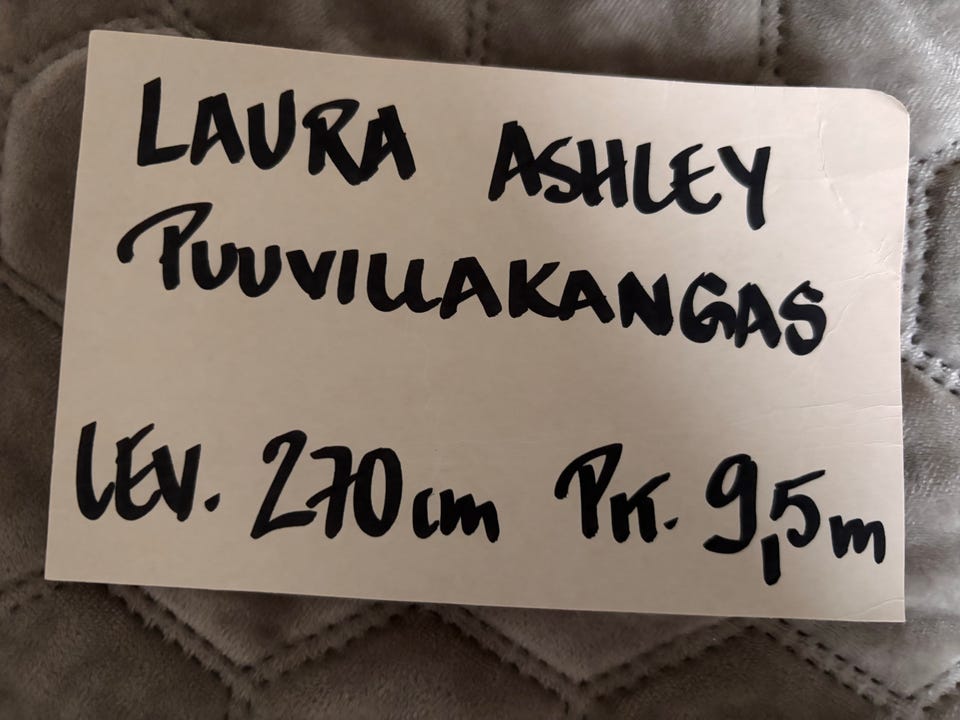 LAURA ASHLEY
PUUVILLAKANGAS
LEV. 270 cm PK. 9,5 m